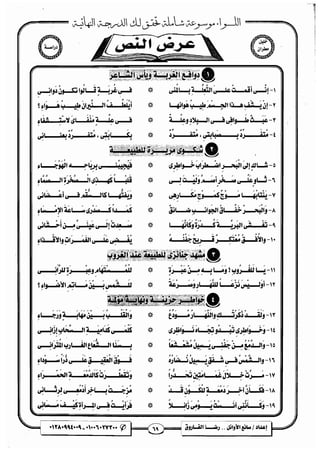 اللواء موسوعة شاملة تحقق لك الدرجة النهائية
عرض النص
خليل مطران
دراسة
١ دوافع الغربة ويأس الشاعر
١- إنى أقمت على التعلة بالمنى * فى غربة قالوا تكون دوائى
٢- إن يشف هذا الجسم طيب هوائها * أيلطف النيران طيب هواء؟
٣- عبث طوافى فى البلاد وعلة * فى علة منفاى لاستشفاء
٤- متفرد بصبابتى، متفرد * بكآبتى، متفرد بعنائى
٢ شكوى مريرة للطبيعة
٥- شاك إلى البحر اضطراب خواطرى * فيجيبنى برياحه الهوجاء
٦- ثاو على صخر أصم وليت لى * قلبا كهذى الصخرة الصماء
٧- ينتابها موج كموج مكارهى * ويفتها كالسقم فى أعضائى
٨- والبحر خفاق الجوانب ضائق * كمدا كصدرى ساعة الإمساء
٩- تغشى البرية كدرة وكأنها * صعدت إلى عينى من أحشائى
١٠- والأفق معتكر قريح جفنه * يغضى على الغمرات والأقذاء
٣ مشهد جنائزى للطبيعة عند الغروب
١١- يا للغروب! وما به من عبرة * للمستهام وعبرة للرائى
١٢- أوليس نزعا للنهار وصرعة * للشمس بين مآتم الأضواء؟
٤ خواطر حزينة ونهاية مؤلمة
١٣- ولقد ذكرتك والنهار مودع * والقلب بين مهابة ورجاء
١٤- وخواطرى تبدو تجاه نواظرى * كلمى كدامية السحاب إزائى
١٥- والدمع من جفنى يسيل مشعشعا * بسنا الشعاع الغارب المترائى
١٦- والشمس فى شفق يسيل نضاره * فوق العقيق على ذرا سوداء
١٧- مرت خلال غمامتين تحدرا * وتقطرت كالدمعة الحمراء
١٨- فكأن آخر دمعة للكون قد * مزجت بآخر أدمعى لرثائى
١٩- وكأننى آنست يومى زائلا * فرأيت فى المرآة كيف مسائى
إعداد / سامح الأوانى .. رضا الفاروق
٦٩